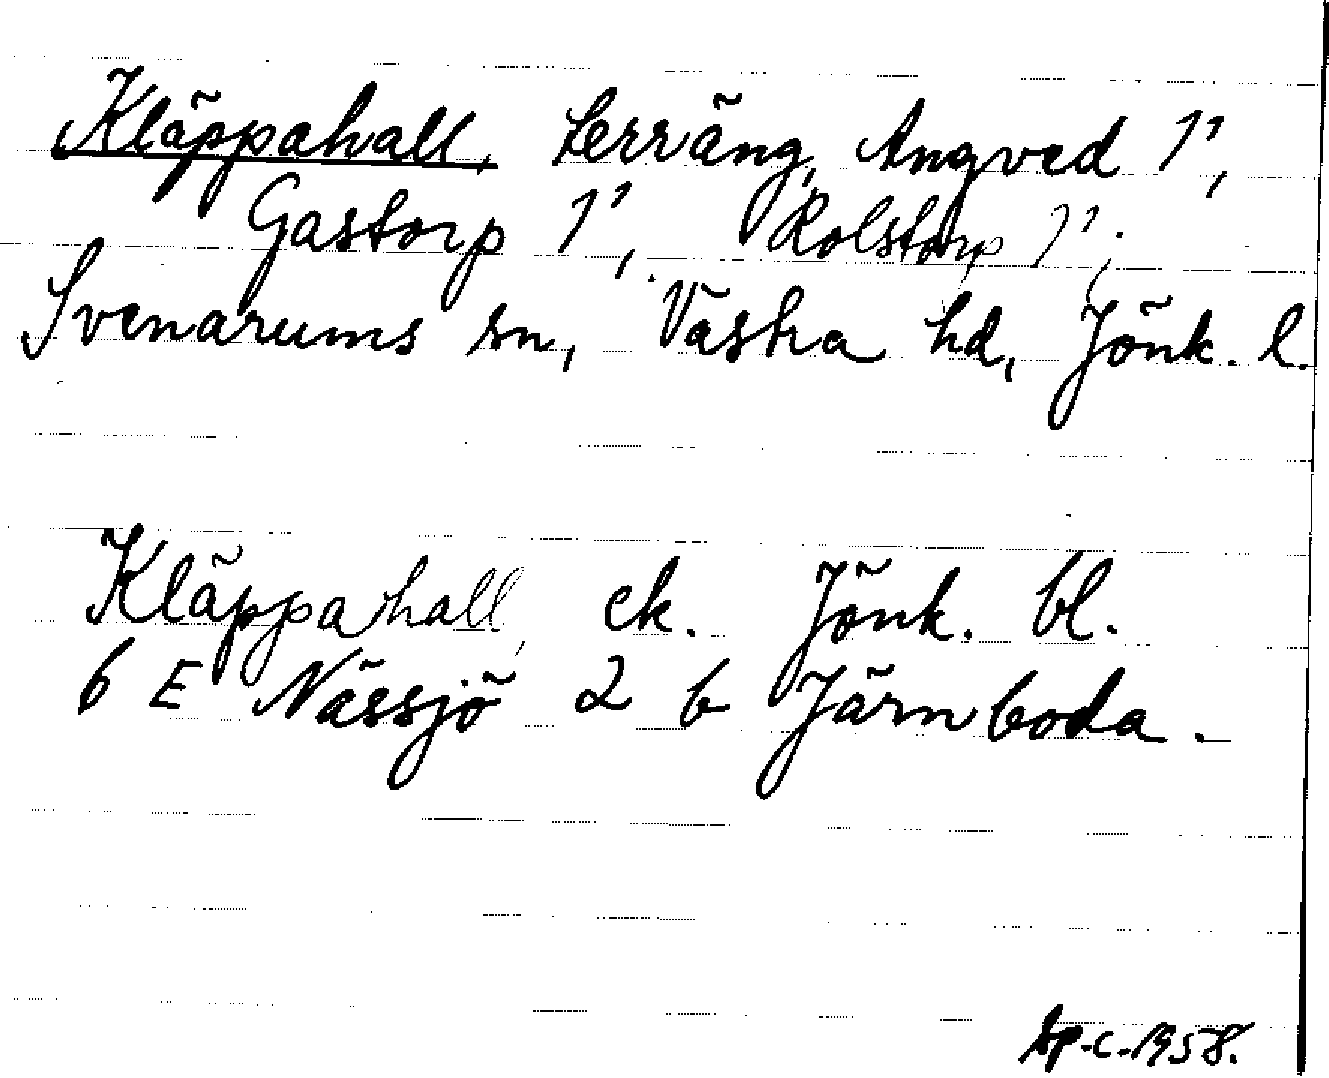 Kläppahall, terräng, Angved 1¹,
Gastorp 1¹, Rolstorp 1¹;
Svenarums sn, Västra hd, Jönk. l.
Kläppahall, ek. Jönk. bl.
6 E Nässjö 2 b Järnboda.
1958.